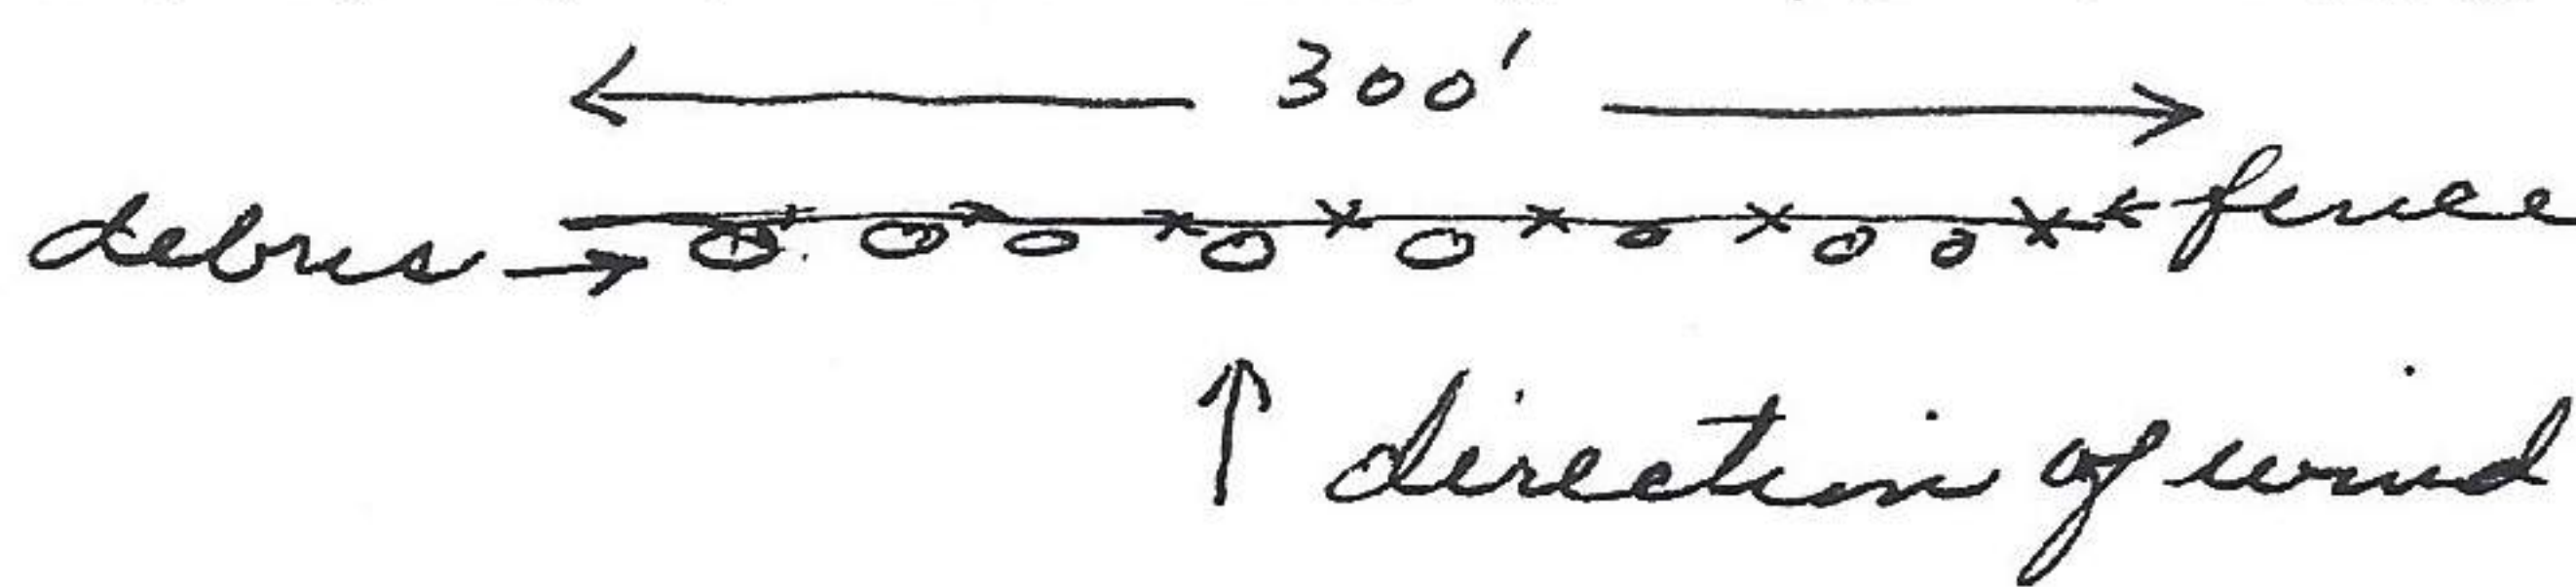 300'
debris → fence
↑ direction of wind